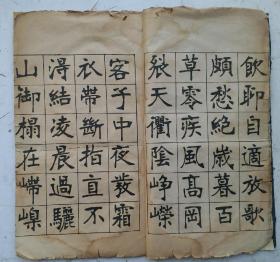 飲聊自適放歌
頗愁絕歲暮百
草零疾風髙岡
裂天衢陰崢嶸
客子中夜發霜
衣帶斷指直不
淂結凌晨過驪
山御榻在嵽嵲